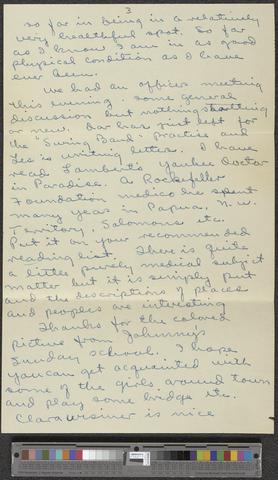 3
so far in being in a relatively
very healthful spot. So far
as I know I am in as good
physical condition as I have
ever been.
We had an officer meeting
this evening. some general
discussion but nothing startling
or new. Dar has just left for
the "Swing Band" practice and
Les is writing letters. I have
read Lambert's Yankee Doctor
in Paradise. A Rockefeller
Foundation medico who spent
many year in Papua, N. W.
Territory, Solomons etc.
Put it on your recommended
reading list. There is quite
a little purely medical subject
matter but it is simply put
and the descriptions of places
and peoples are interesting
Thanks for the colored
picture from Johnny's
Sunday school. I hope
you can get acquented with
some of the girls around town
and play some bridge etc.
Clara is nice